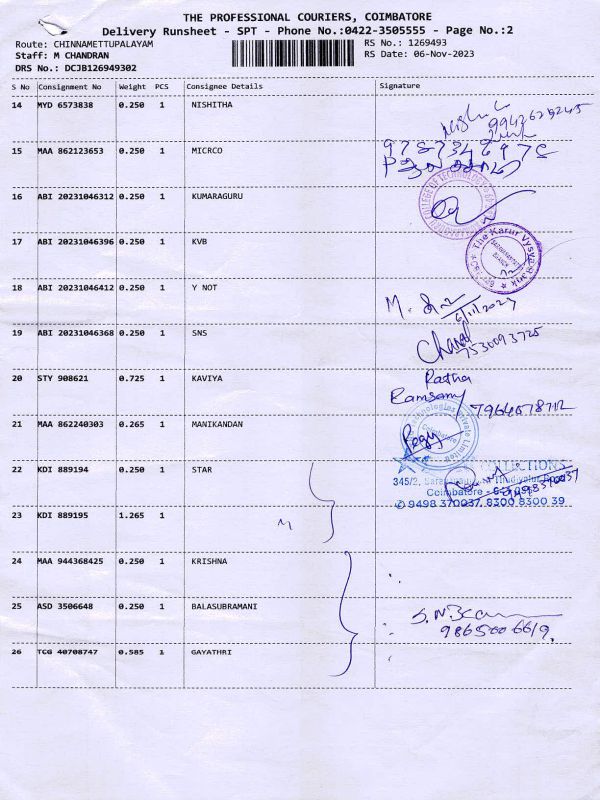 THE PROFESSIONAL COURIERS, COIMBATORE
Delivery Runsheet - SPT - Phone No.:0422-3505555 - Page No.:2
Route: CHINNAMETTUPALAYAM RS No.: 1269493
Staff: M CHANDRAN RS Date: 06-Nov-2023
DRS No.: DCJB126949302
S No Consignment No Weight PCS Consignee Details Signature
14 MYD 6573838 0.250 1 NISHITHA
15 MAA 862123653 0.250 1 MICRCO
16 ABI 20231046312 0.250 1 KUMARAGURU
17 ABI 20231046396 0.250 1 KVB
The Karur Vysya Bank
18 ABI 20231046412 0.250 1 Y NOT
6/11/2023
19 ABI 20231046368 0.250 1 SNS
7530093725
20 STY 908621 0.725 1 KAVIYA
Ramsamy
7964578712
21 MAA 862240303 0.265 1 MANIKANDAN
Technologies Private Limited
Coimbatore
22 KDI 889194 0.250 1 STAR
345/2,
Coimbatore -
9498 370037, 8300 8300 39
23 KDI 889195 1.265 1
24 MAA 944368425 0.250 1 KRISHNA
25 ASD 3506648 0.250 1 BALASUBRAMANI
9865006619.
26 TCG 40708747 0.585 1 GAYATHRI